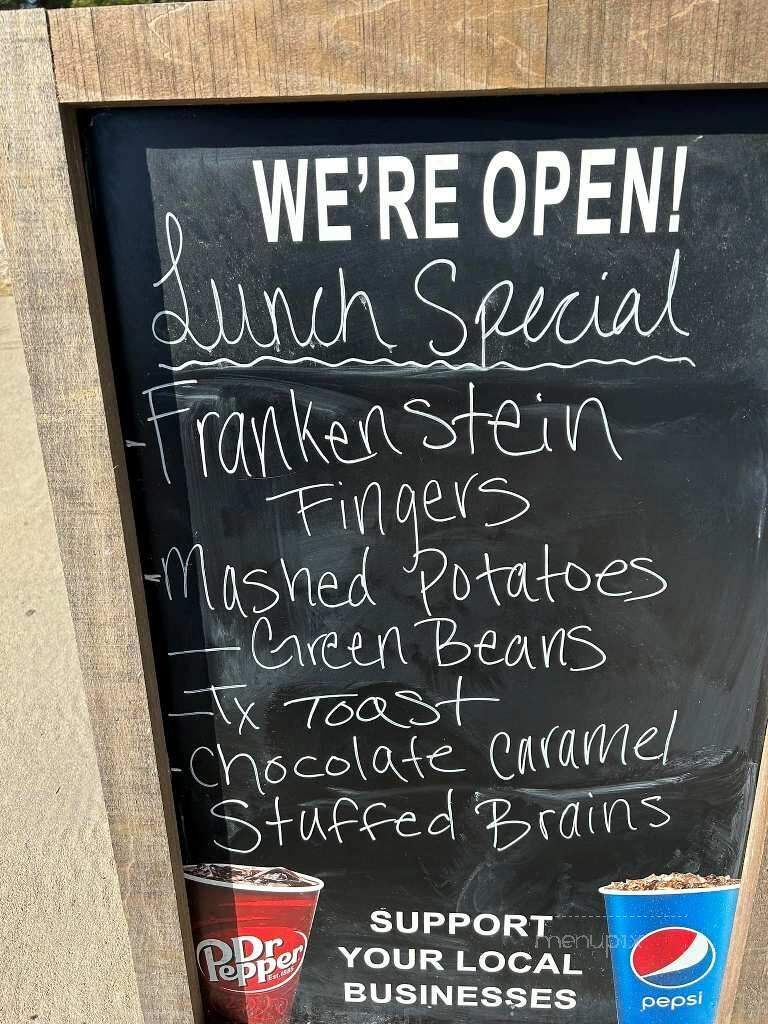 WE'RE OPEN!
Lunch Special
- Frankenstein
Fingers
- Mashed Potatoes
- Green Beans
- Tx Toast
- Chocolate Caramel
Stuffed Brains
SUPPORT
YOUR LOCAL
BUSINESSES
Dr Pepper
Est. 1885
pepsi
menupix